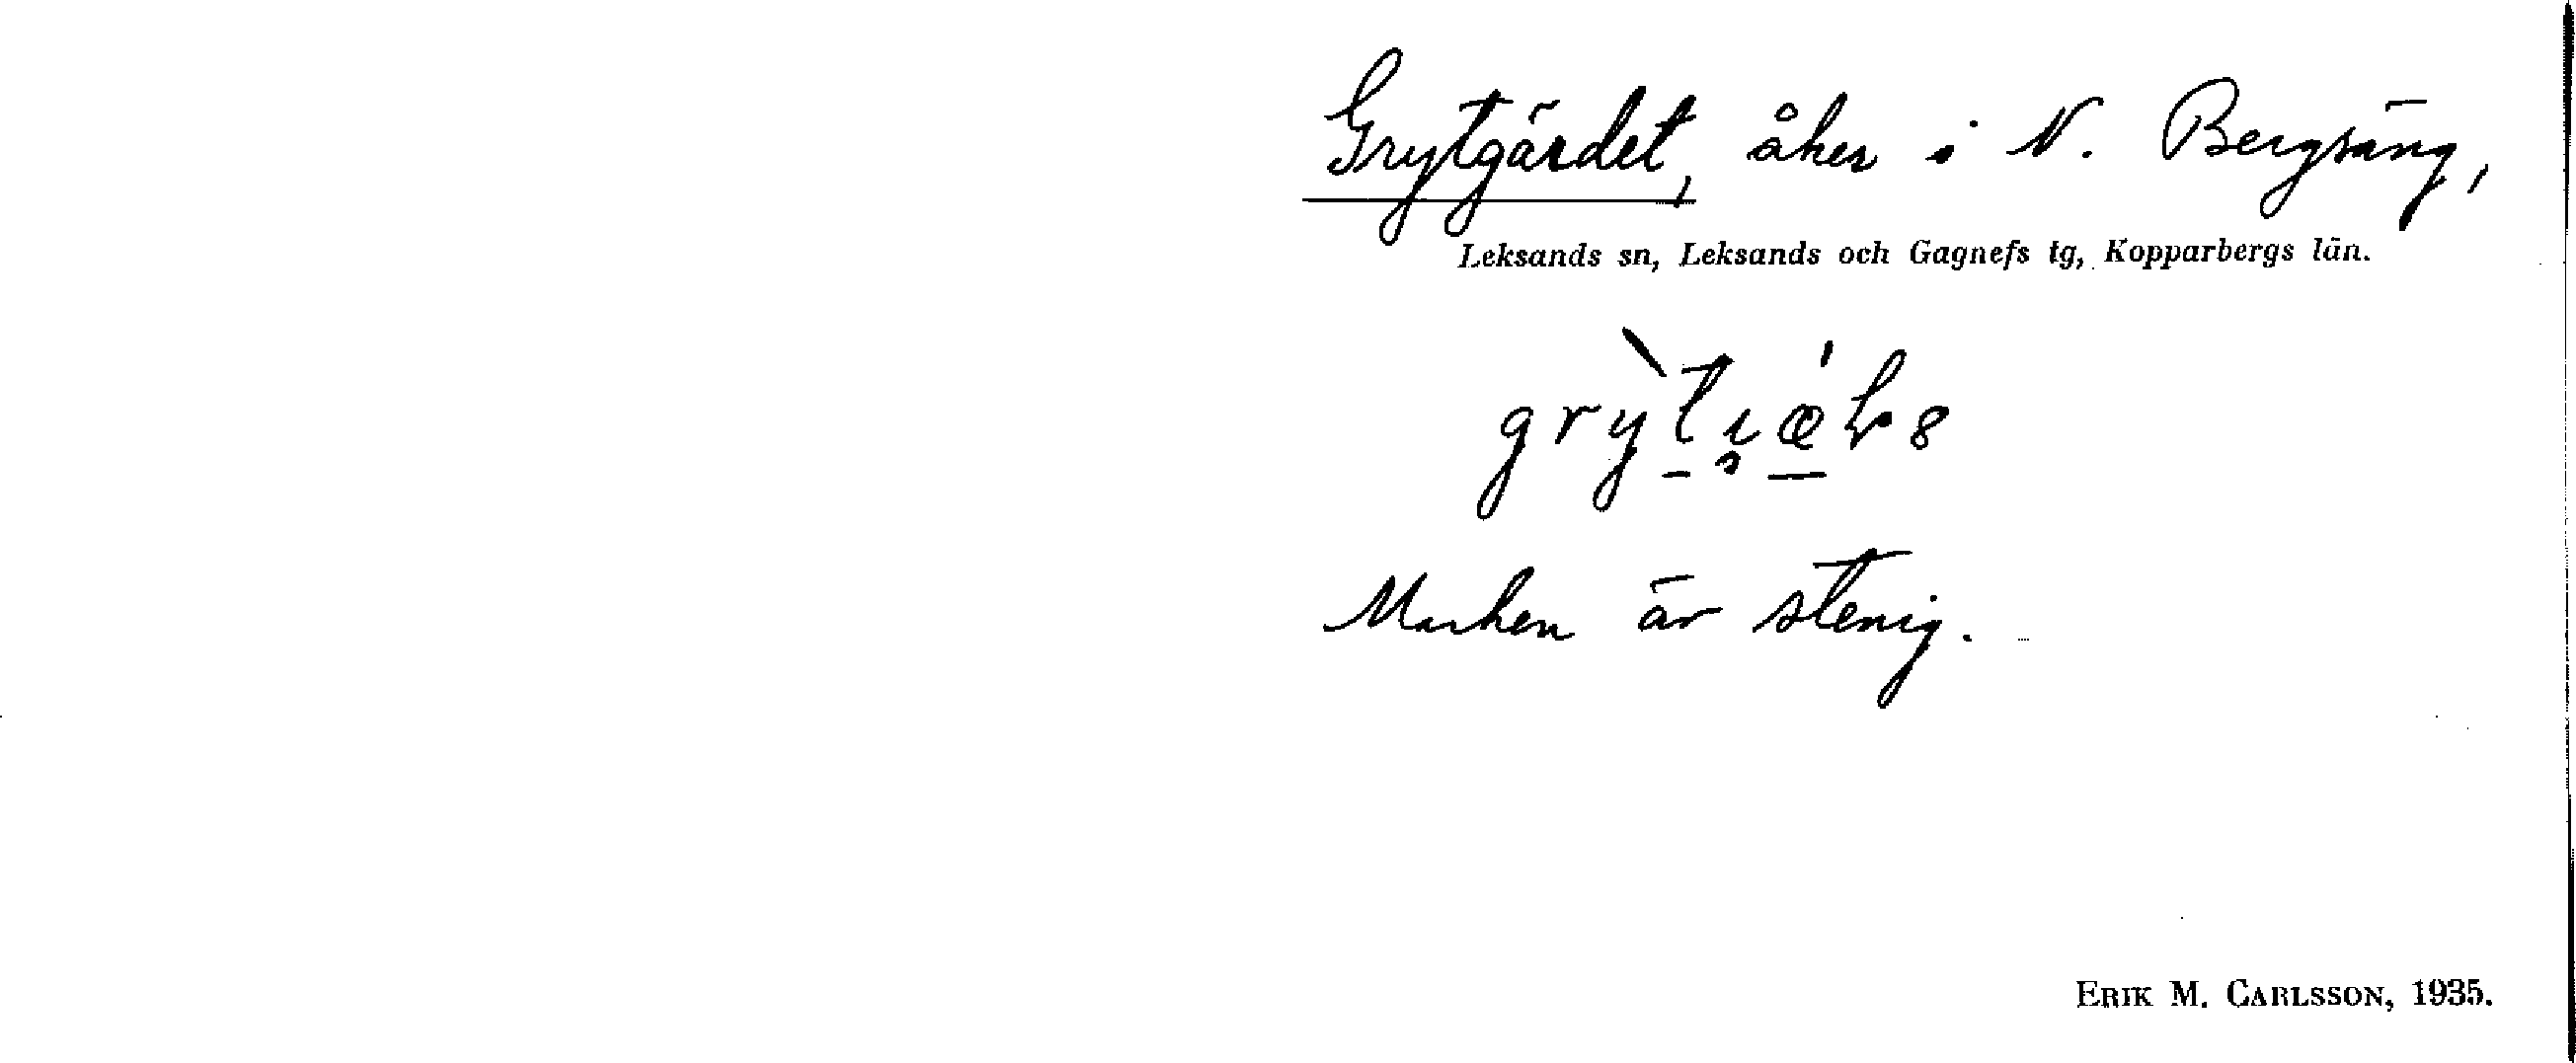 Grytgärdet, åker i N. Bergsäng,
Leksands sn, Leksands och Gagnefs tg, Kopparbergs län.
Marken är stenig.
ERIK M. CARLSSON, 1935.